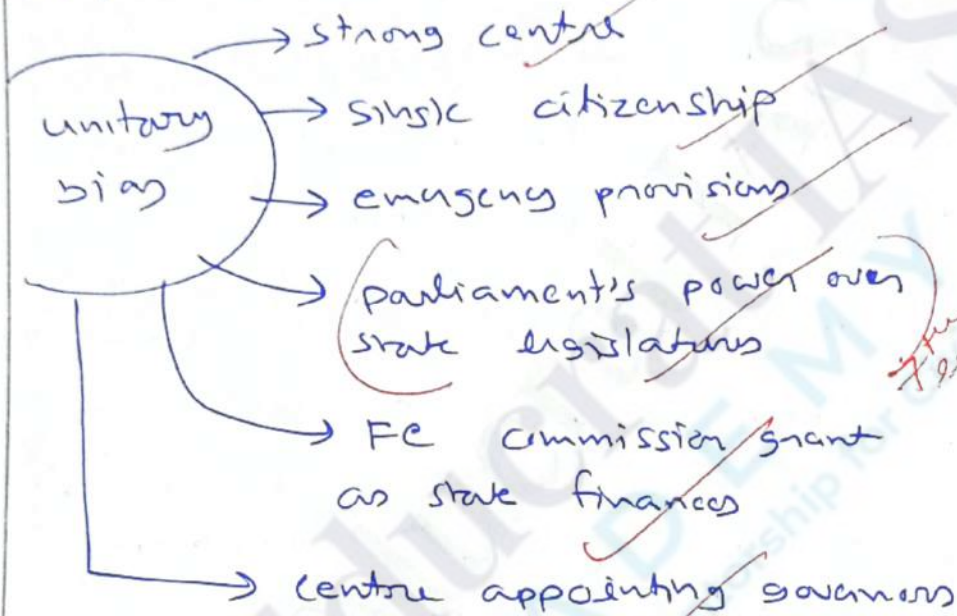 strong centre
unitary
bias
single citizenship
emergency provisions
parliament's power over
state legislatures
FC commission grant
as state finances
centre appointing governors